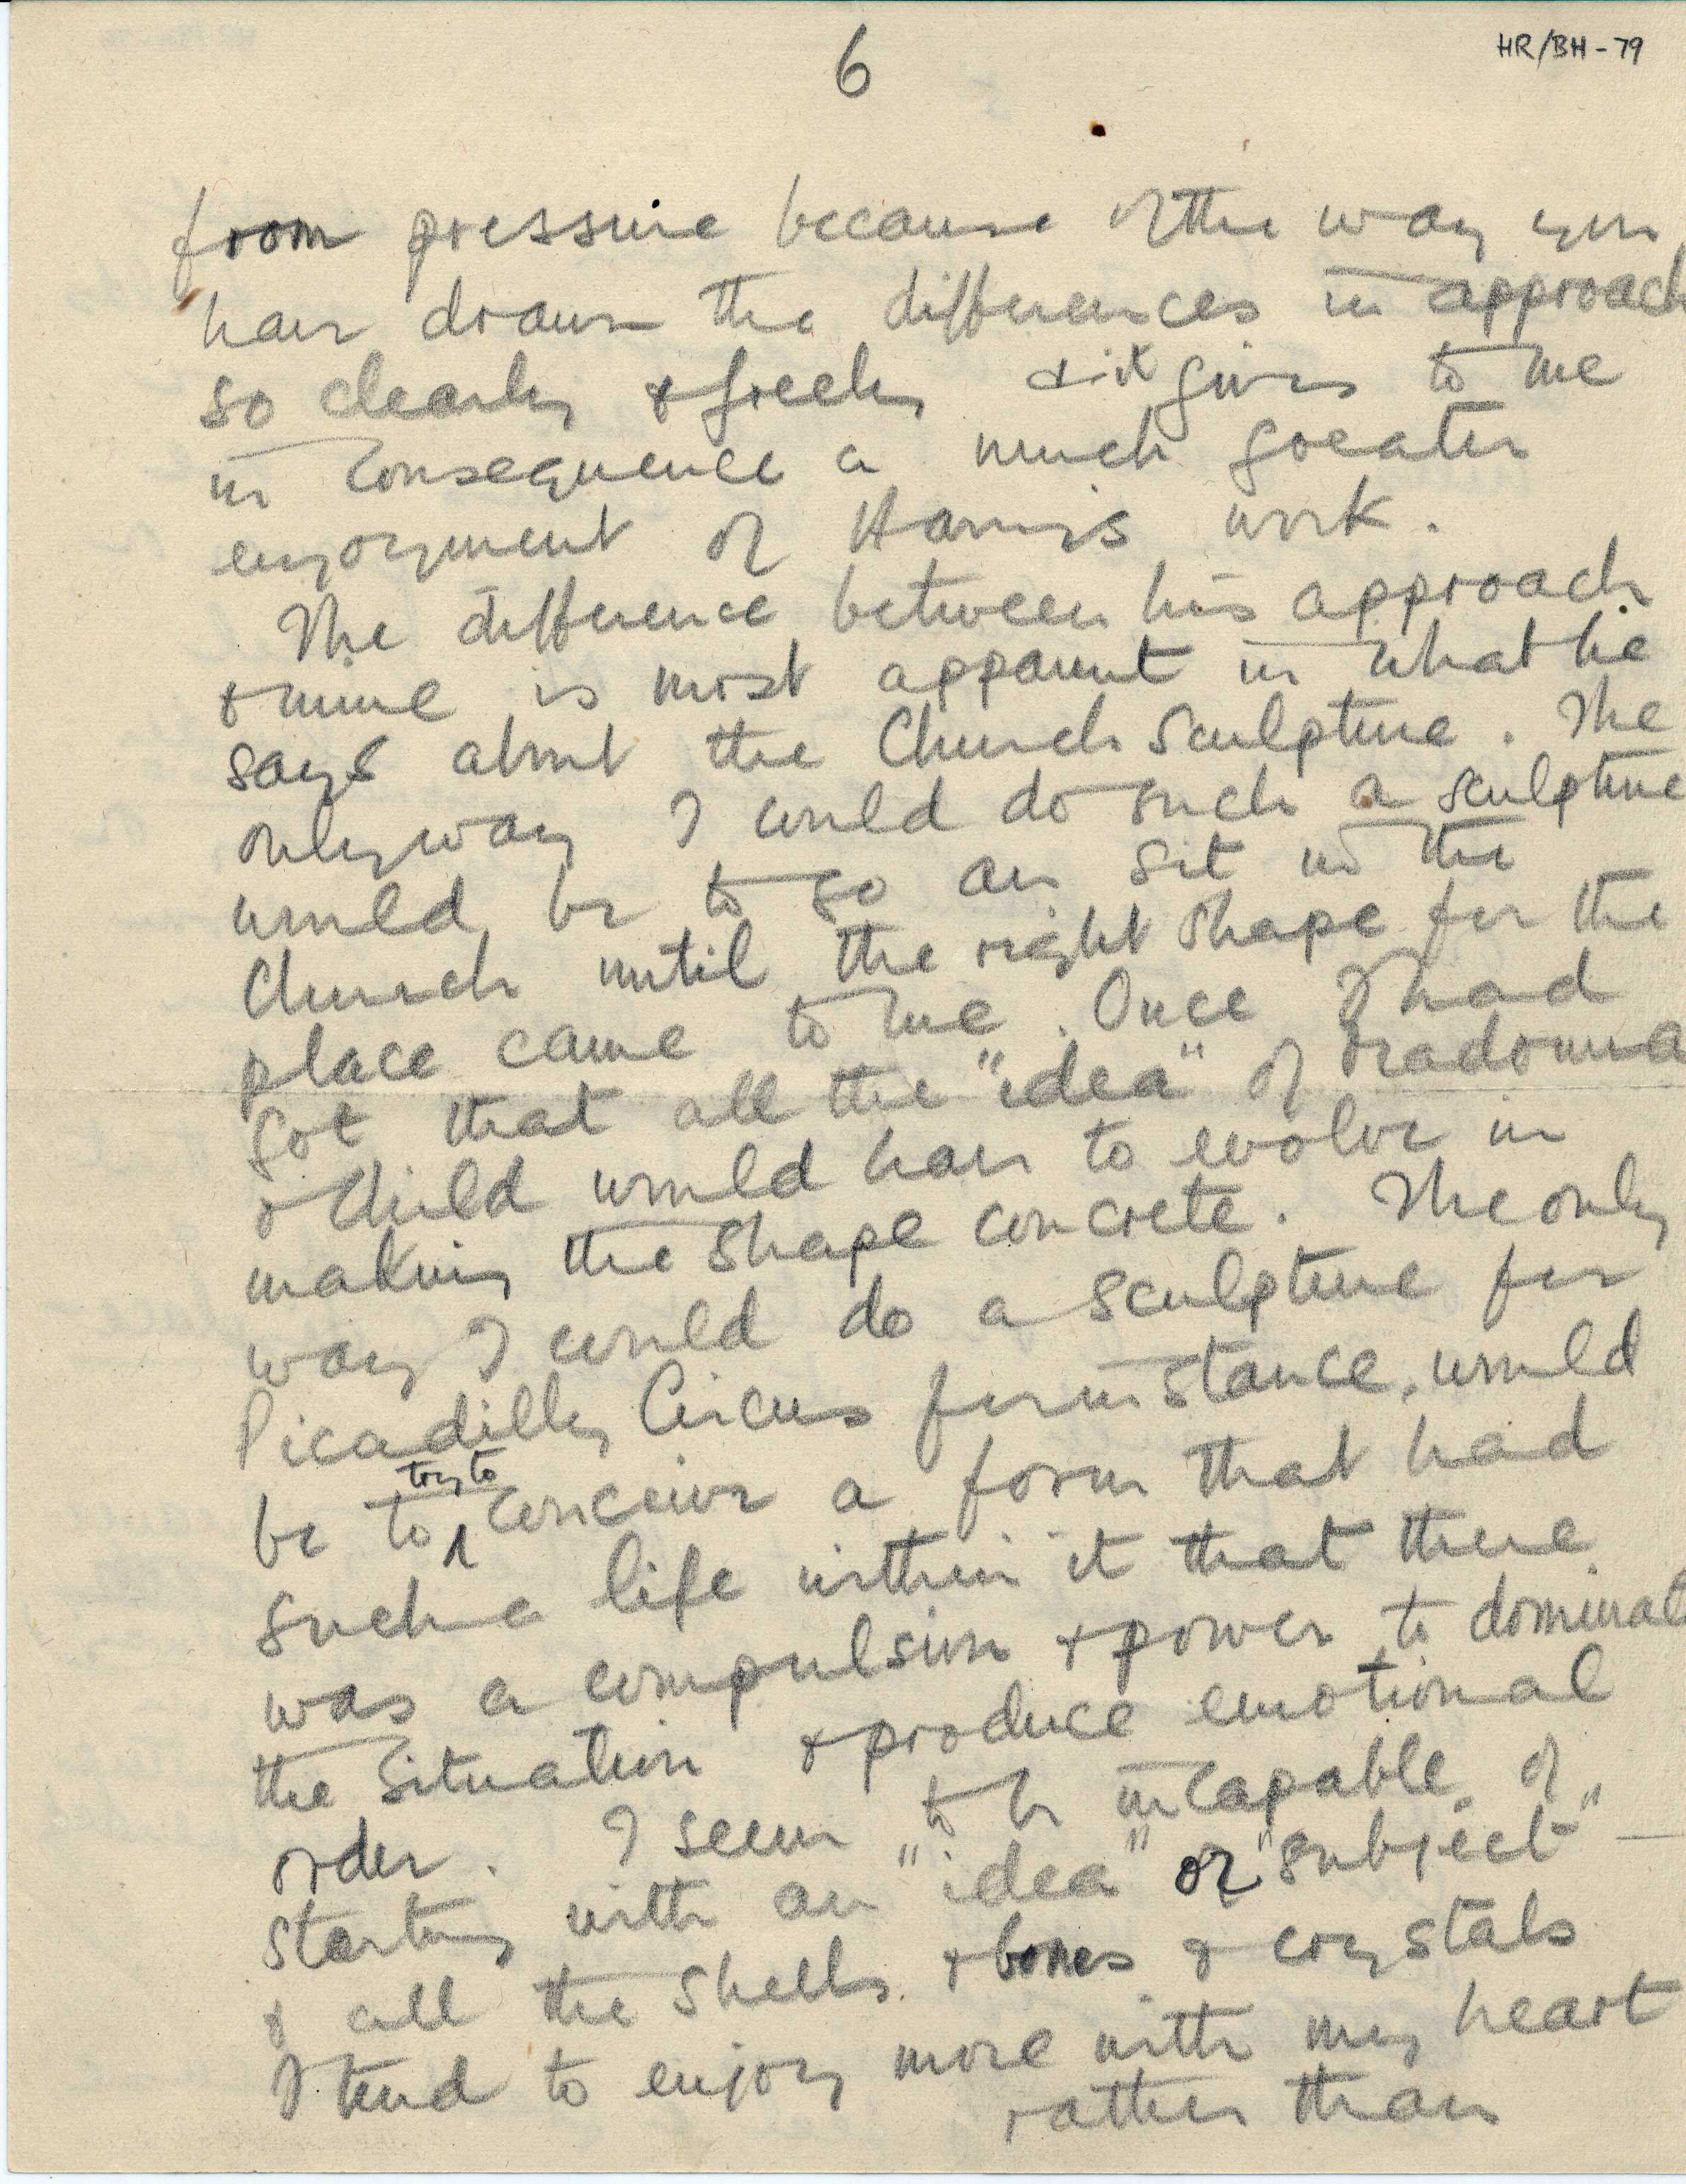 6
HR/BH - 79
from pressure because of the way you
have drawn the differences in approach
so clearly & freely & it gives to me
in consequence a much greater
enjoyment of Harry's work.
The difference between his approach
& mine is most apparent in what he
says about the Church sculpture. The
only way I could do such a sculpture
would be to go an sit in the
Church until the right shape for the
place came to me. Once I had
got that all the "idea" of madonna
& Child would have to evolve in
making the shape concrete. The only
way I could do a sculpture for
Picadilly Circus for instance, would
be to try to conceive a form that had
such a life within it that there
was a compulsion & power to dominate
the situation & produce emotional
order. I seem to be incapable of
starting with an "idea" or "subject" —
& all the shells & bones & crystals
I tend to enjoy more with my heart
rather than